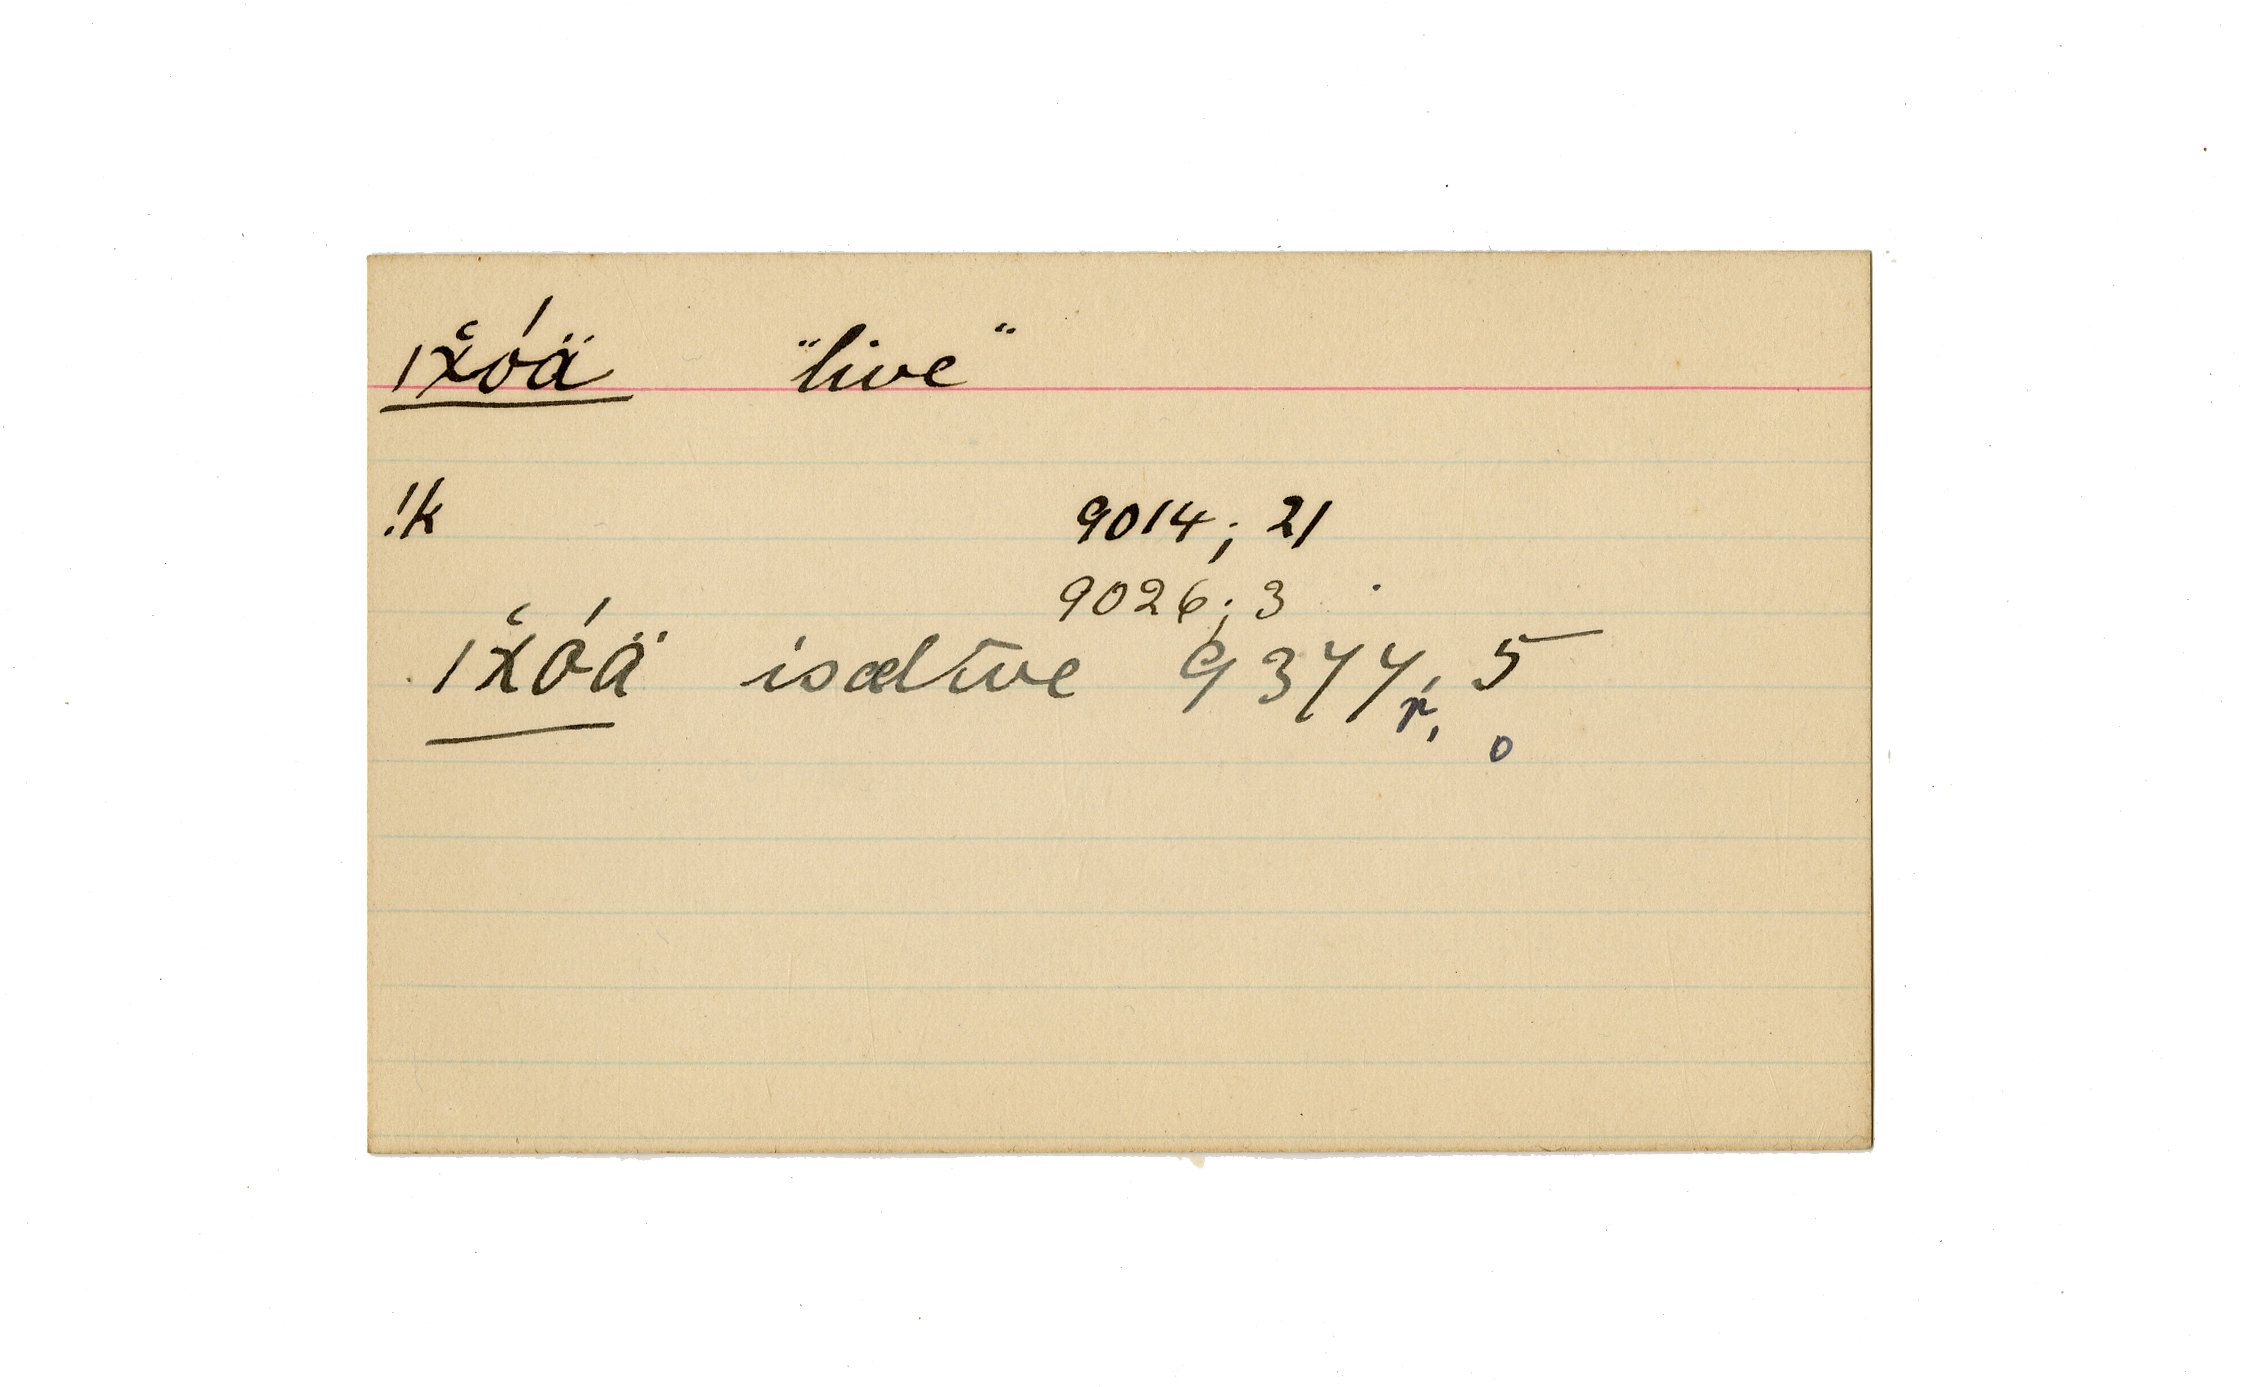 ǀx̌óä "live"
!k 9014; 21
9026; 3
ǀx̌óä 9377; 5